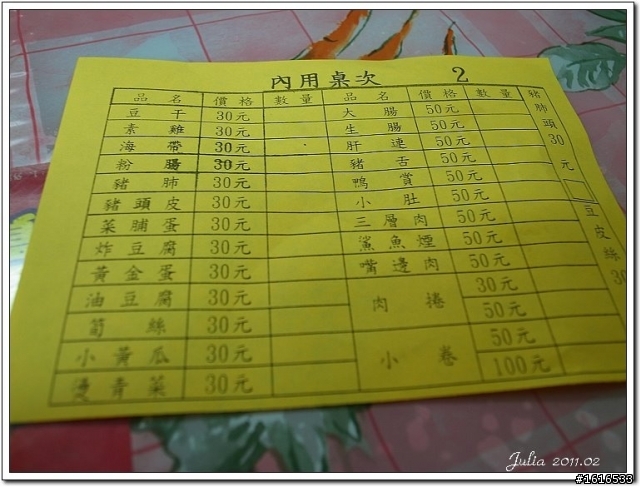 內用桌次 2
品名 價格 數量 品名 價格 數量
豆干 30元 大腸 50元
素雞 30元 生腸 50元
海帶 30元 肝連 50元
粉腸 30元 豬舌 50元
豬肺 30元 鴨賞 50元
豬頭皮 30元 小肚 50元
菜脯蛋 30元 三層肉 50元
炸豆腐 30元 鯊魚煙 50元
黃金蛋 30元 嘴邊肉 50元
油豆腐 30元 肉捲 30元
筍絲 30元 50元
小黃瓜 30元 小卷 50元
燙青菜 30元 100元
豬肺頭30元
豆皮絲30
Julia 2011.02
#1616533